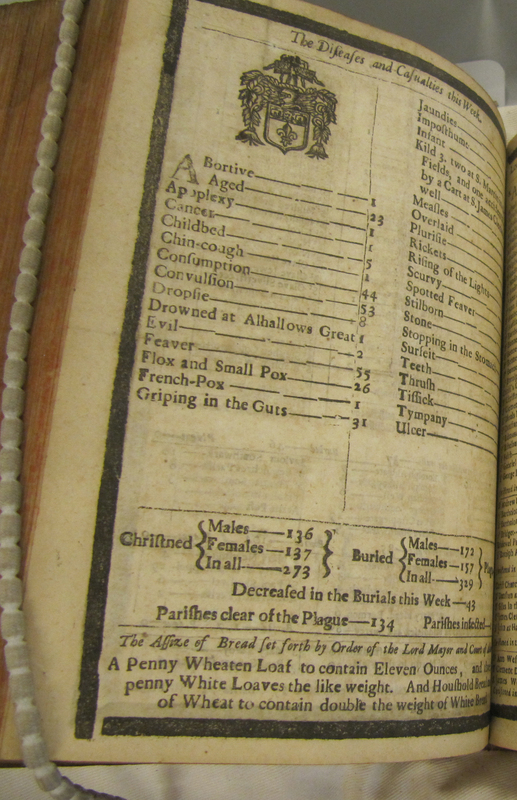 The Diſeaſes and Caſualties this Week.
Abortive—1
Aged—23
Apoplexy—1
Cancer—1
Childbed—5
Chin-cough—1
Conſumption—44
Convulſion—53
Dropſie—8
Drowned at Alhallows Great 1
Evil—2
Feaver—55
Flox and Small Pox—26
French-Pox—1
Griping in the Guts—31
Jaundies
Impoſthume
Infant
Kild 3. two at S.
Fields, and one
by a Cart at S. James
well
Meaſles
Overlaid
Pluriſie
Rickets
Riſing of the Lights
Scurvy
Spotted Feaver
Stilborn
Stone
Stopping in the
Surfeit
Teeth
Thruſh
Tiſſick
Tympany
Ulcer
Chriſtned { Males—136 Females—137 In all—273 }
Buried { Males—172 Females—157 In all—329 }
Decreaſed in the Burials this Week—43
Pariſhes clear of the Plague—134 Pariſhes
The Aſſize of Bread ſet forth by Order of the Lord Mayor and Court of
A Penny Wheaten Loaf to contain Eleven Ounces, and
penny White Loaves the like weight. And Houſhold
of Wheat to contain double the weight of White